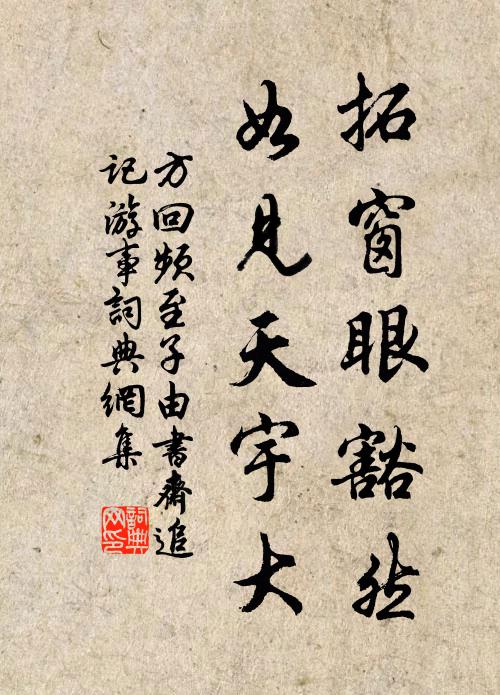 拓窗眼豁然
如見天宇大
方回頻至子由書齋追
記游事詞典網集
詞典
网印